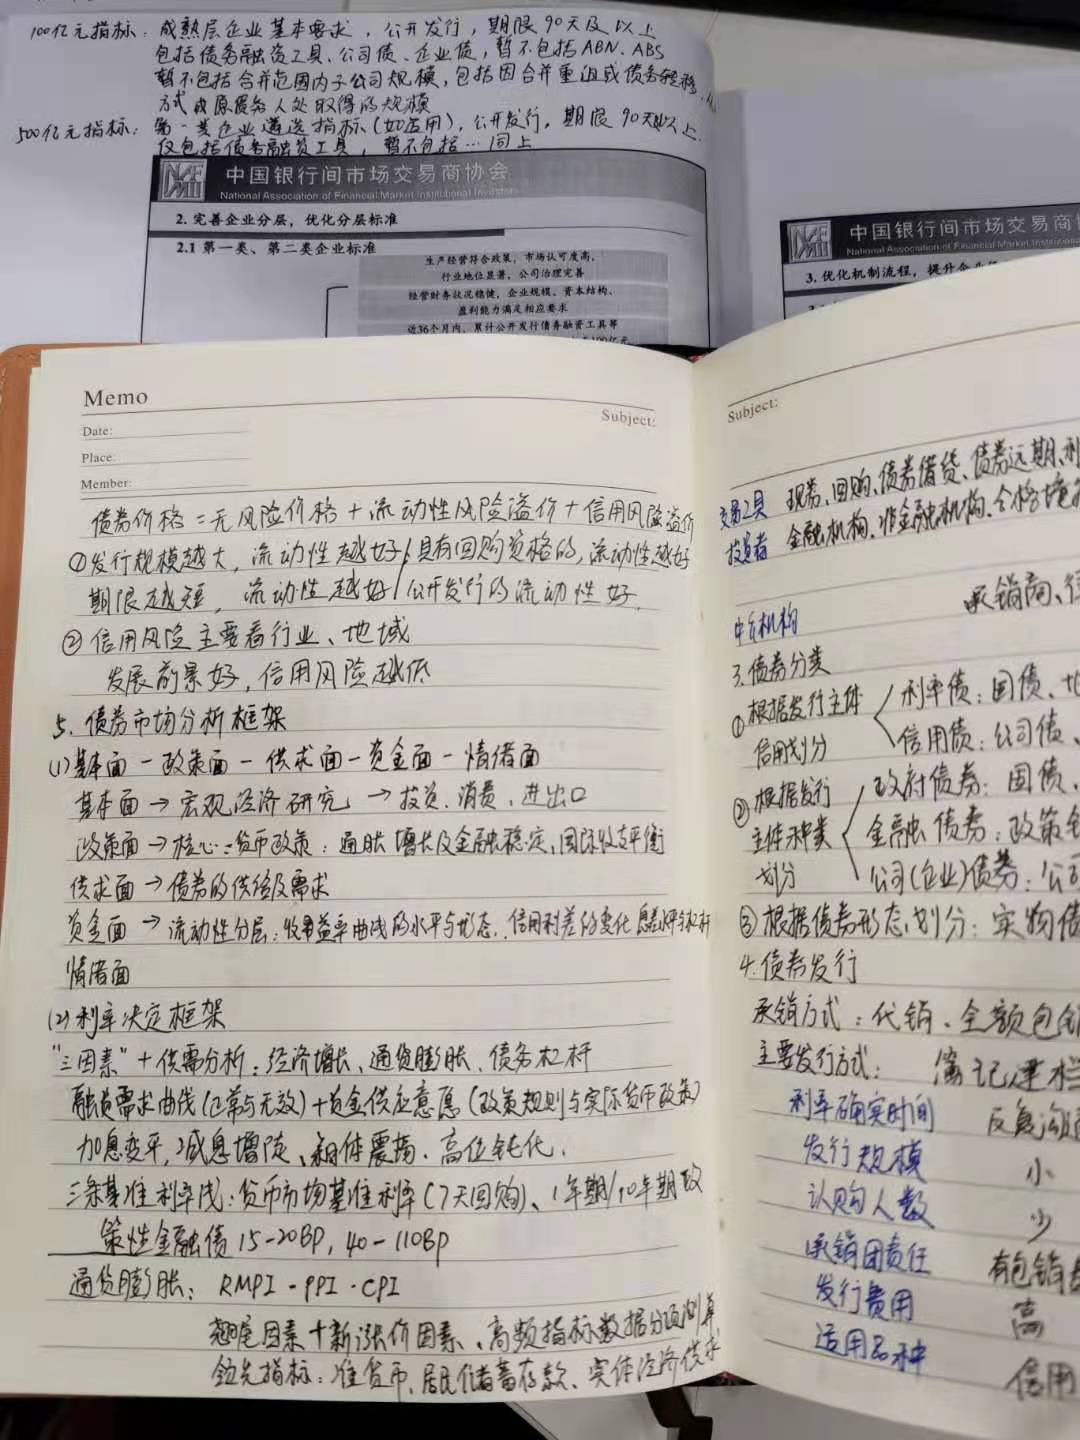 100亿元指标：成熟层企业基本要求，公开发行，期限90天及以上
包括债务融资工具、公司债、企业债，暂不包括ABN、ABS
暂不包括合并范围内子公司规模，包括因合并重组或债务转移
方式由原债务人处取得的规模
500亿元指标：第一类企业遴选指标（如适用），公开发行，期限90天及以上
仅包括债务融资工具，暂不包括…同上
中国银行间市场交易商协会
National Association of Financial Market Institutional Investors
2. 完善企业分层，优化分层标准
2.1 第一类、第二类企业标准
生产经营符合政策，市场认可度高，
行业地位显著，公司治理完善
经营财务状况稳健，企业规模、资本结构、
盈利能力满足相应要求
近36个月内，累计公开发行债务融资工具等
100亿元
中国银行间市场交易商协
National Association of Financial Market Institutional
3. 优化机制流程，提升
Memo
Subject:
Date:
Place:
Member:
债券价格=无风险价格+流动性风险溢价+信用风险溢价
①发行规模越大，流动性越好/具有回购资格的，流动性越好
期限越短，流动性越好/公开发行的流动性好
②信用风险主要看行业、地域
发展前景好，信用风险越低
5. 债券市场分析框架
(1)基本面-政策面-供求面-资金面-情绪面
基本面→宏观经济研究→投资、消费、进出口
政策面→核心：货币政策：通胀 增长及金融稳定、国际收支平衡
供求面→债券的供给及需求
资金面→流动性分层：收益率曲线的水平与形态、信用利差的变化 息差水平与杠杆
情绪面
(2)利率决定框架
"三因素"+供需分析：经济增长、通货膨胀、债务杠杆
融资需求曲线(正常与无效)+资金供应意愿(政策规则与实际货币政策)
加息变平，减息增陡、 震荡、高位钝化、
三条基准利率线：货币市场基准利率(7天回购)、1年期/10年期政
策性金融债 15-20BP, 40-110BP
通货膨胀：RMPI-PPI·CPI
翘尾因素+新涨价因素、高频指标数据分项测算
领先指标：准货币、居民储蓄存款、实体经济供求
Subject:
交易工具 现券、回购、债券借贷、债券远期、利
投资者 金融机构、非金融机构、合格境
中介机构 承销商、
3.债券分类
①根据发行主体信用划分
利率债：国债、地
信用债：公司债、
②根据发行主体种类划分
政府债券：国债、
金融债券：政策
公司(企业)债券：公司
③根据债券形态划分：实物债
4.债券发行
承销方式：代销、全额包销
主要发行方式： 簿记建档
利率确实时间 反复沟通
发行规模 小
认购人数 少
承销团责任 有包销
发行费用 高
适用品种 信用